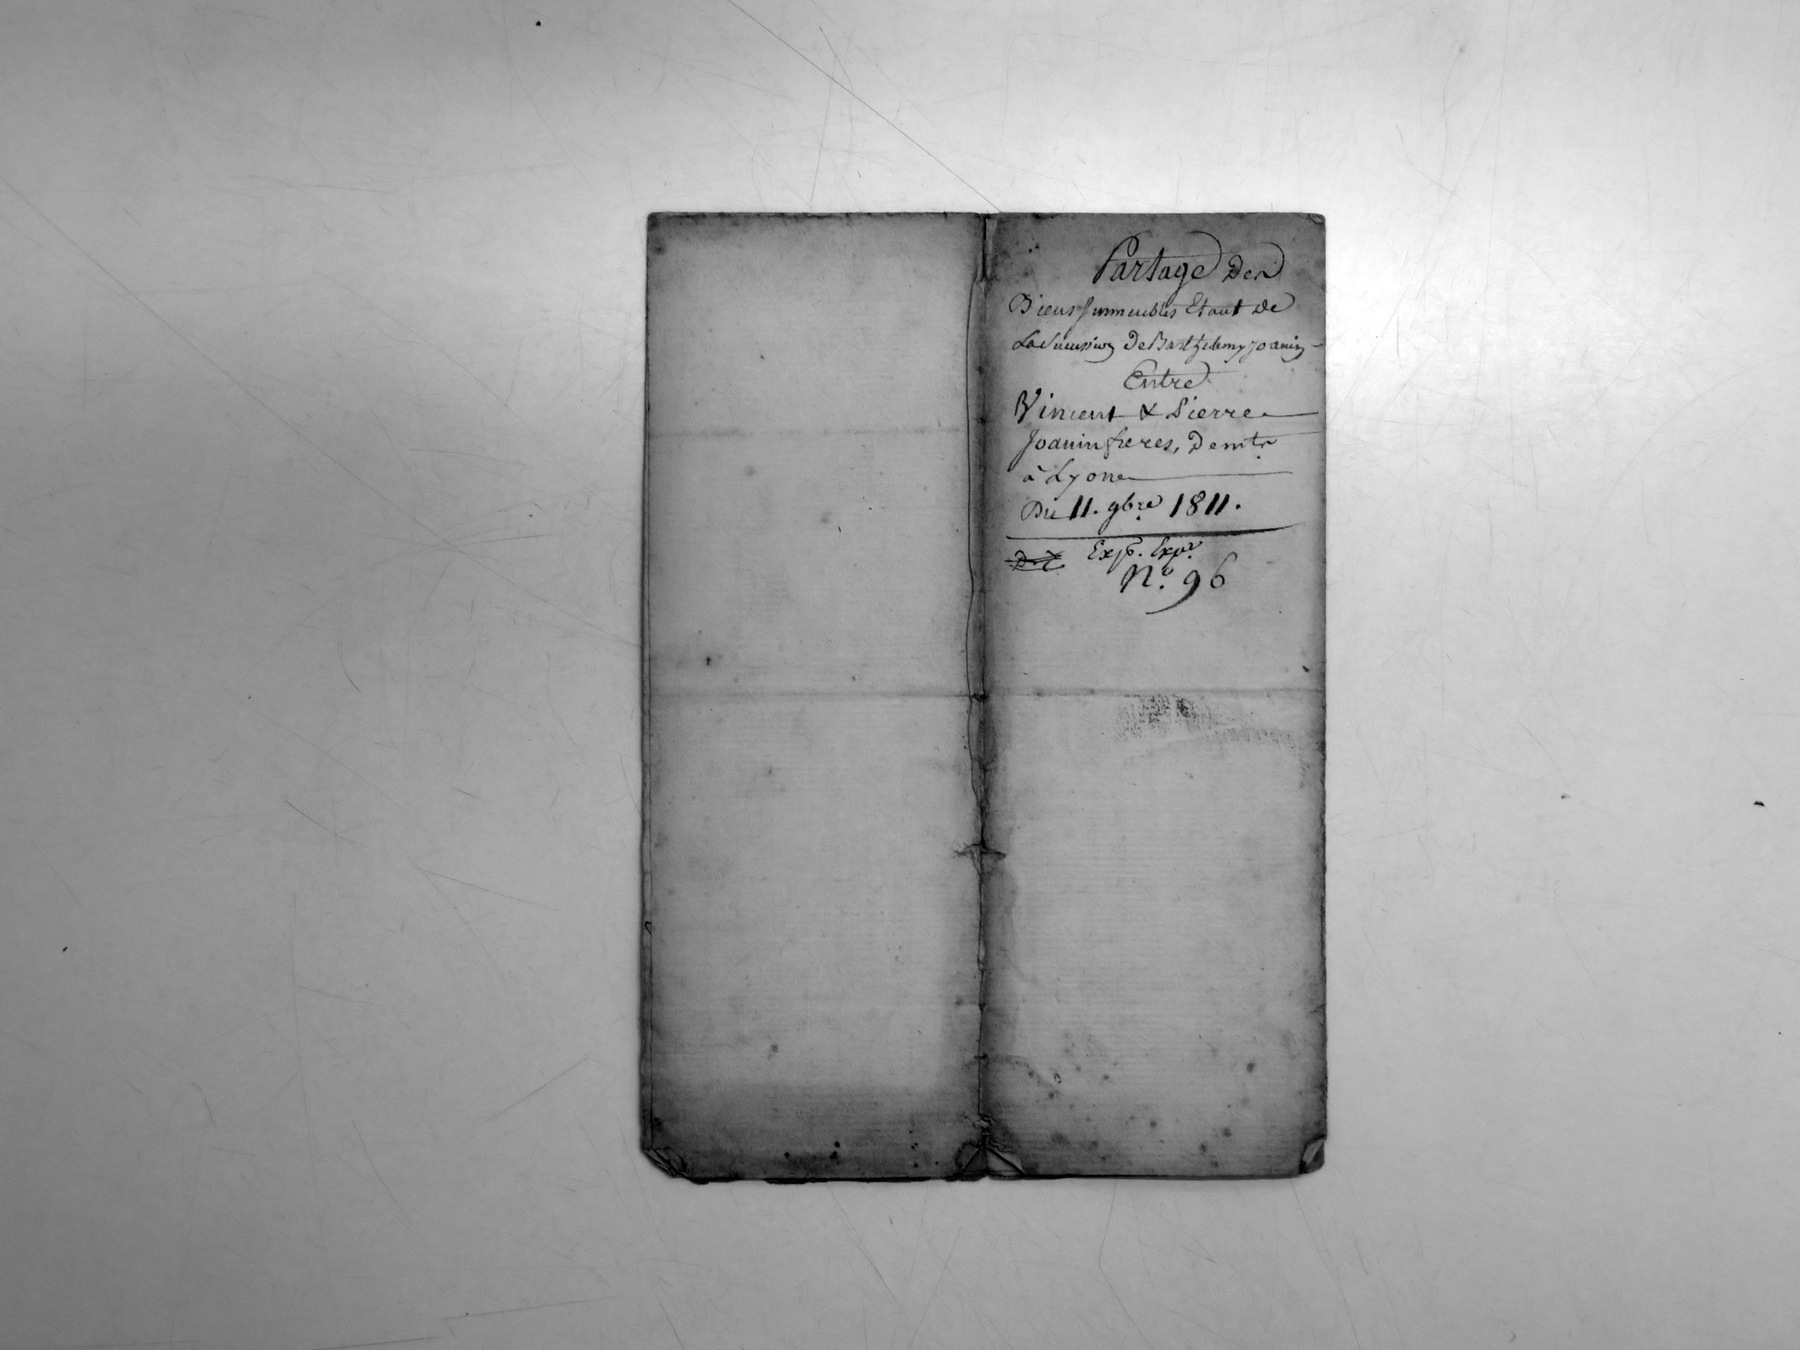 Partage des
Biens Immeubles Etant de
La Succession De Barthelemy Joanin
Entre
Vincent & Pierre
Joanin freres, Demts
à Lyon
Du 11. 9bre 1811.
Expé. Expr
N.º 96